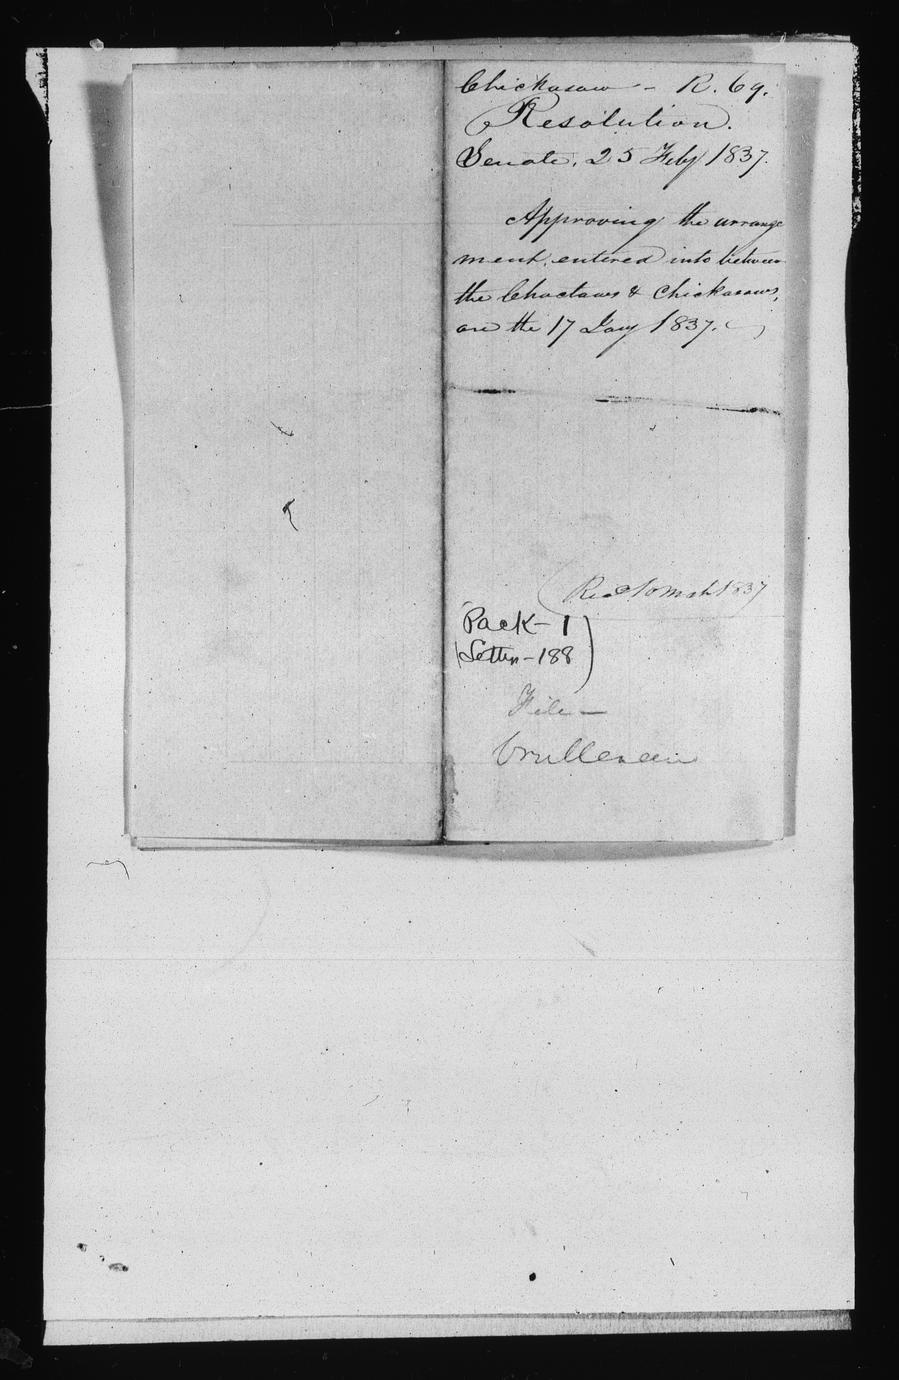 Chickasaw - R. 69.
Resolution.
Senate, 25 Feby 1837.
Approving the arrange
ment, entered into between
the Choctaws & Chickasaws,
on the 17 Jany 1837.
Recd 10 Mch 1837
Pack - 1
Letter - 188
File -